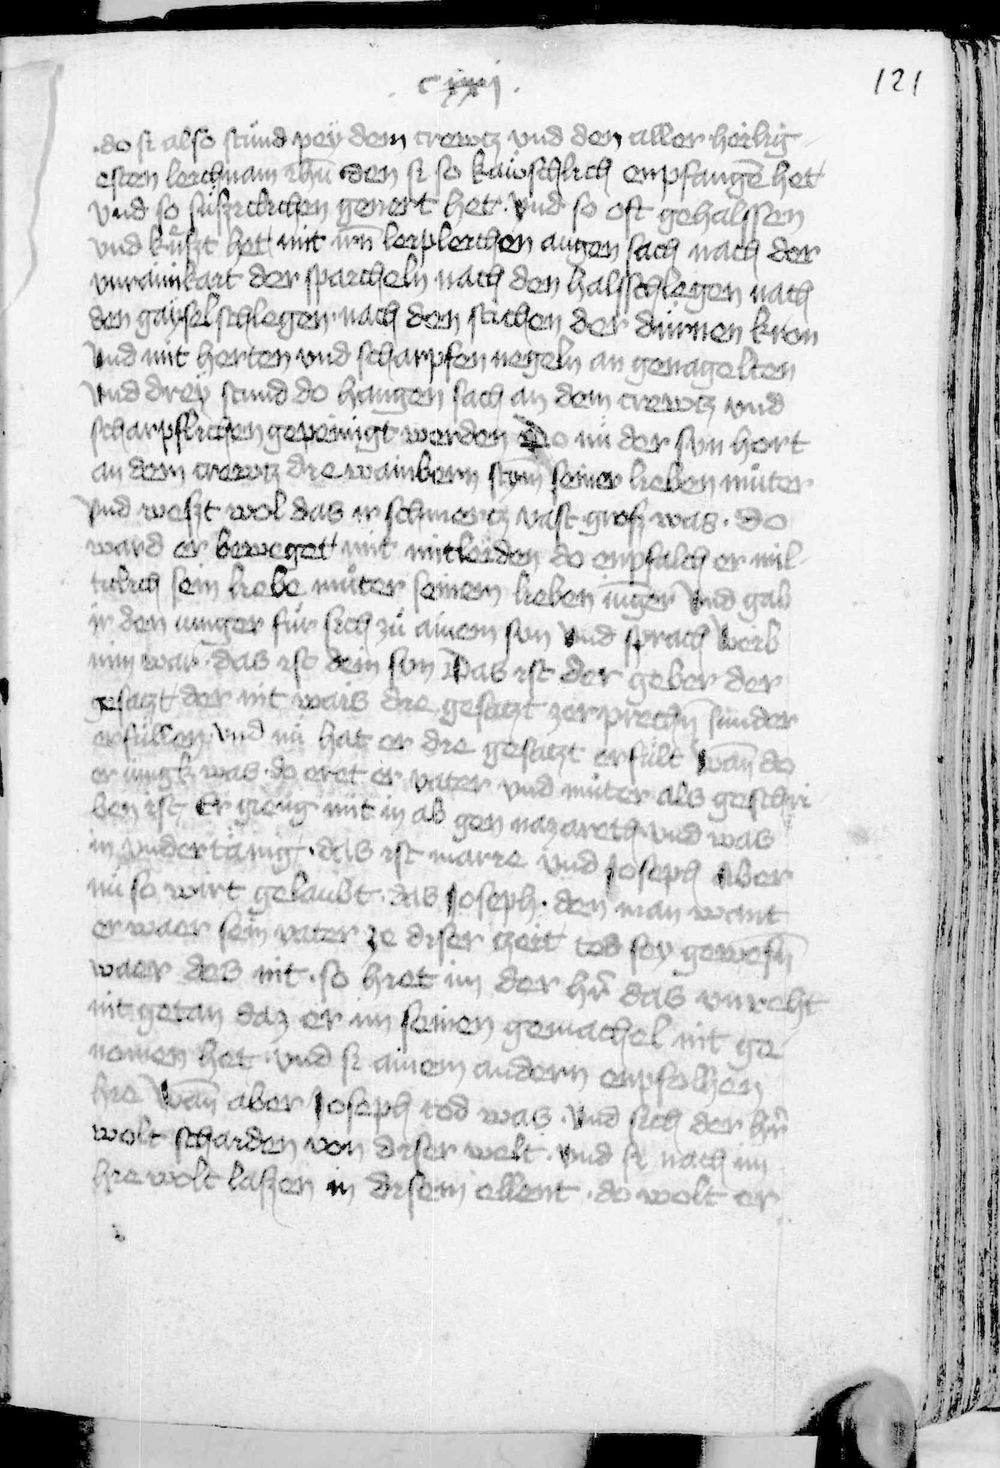 cxxj.
121
.do si also stuͦnd pey dem crewtz vnd den aller heilig-
esten leichnam ihū den si so kawschlich enpfangē het
vnd so suͤszclichen genert het. Vnd so oft gehalssen
vnd kuͤszt het mit irn̄ leipleichen augen sach nach der
vnrainkait der spaicheln nach den halsschlegen nach
den gayselschlegen. nach den stichen der durnen kron
Vnd mit herten vnd scharpfen negeln an genagelten
Vnd drey stund do hangen sach an dem crewtz vnd
scharpflichen gepeinigt werden Do nu der sun hort
an dem crewtz die wainbern stym̄ seiner lieben muͦter
Vnd weszt wol das ir schmertz vast grosz was. do
ward er beweget mit mitleiden do enpfalch er mil-
ticlich sein liebe muͦter seinem lieben iunger Vnd gab
ir den iunger fuͤr sich zuͦ ainem sun Vnd sprach Weib
nim war. das ist dein sun Das ist der geber der
gesatzt der nit wais die gesatzt zerprechn̄ sunder
erfullen Vnd nu hat er die gesatzt erfult Wan̄ do
er iungk was. do eret er vater vnd muter als geschri-
ben ist Er gieng mit in ab gen nazareth vnd was
in vndertanig. das ist marie vnd Joseph Aber
nu so wirt gelaubt. das Joseph. den man want
er waer sein vater ze diser zeit tod sey gewesn̄
waer des nit. so hiet im der hr̄ das vnreht
nit getan daz er im seinen gemachel nit ge-
nomen het. vnd si ainem andern enpfolhen
hie Wan̄ aber Joseph tod was. Vnd sich der hr̄
wolt schaiden von diser welt. Vnd si nach im
hie wolt laszen in disem ellent. do wolt er